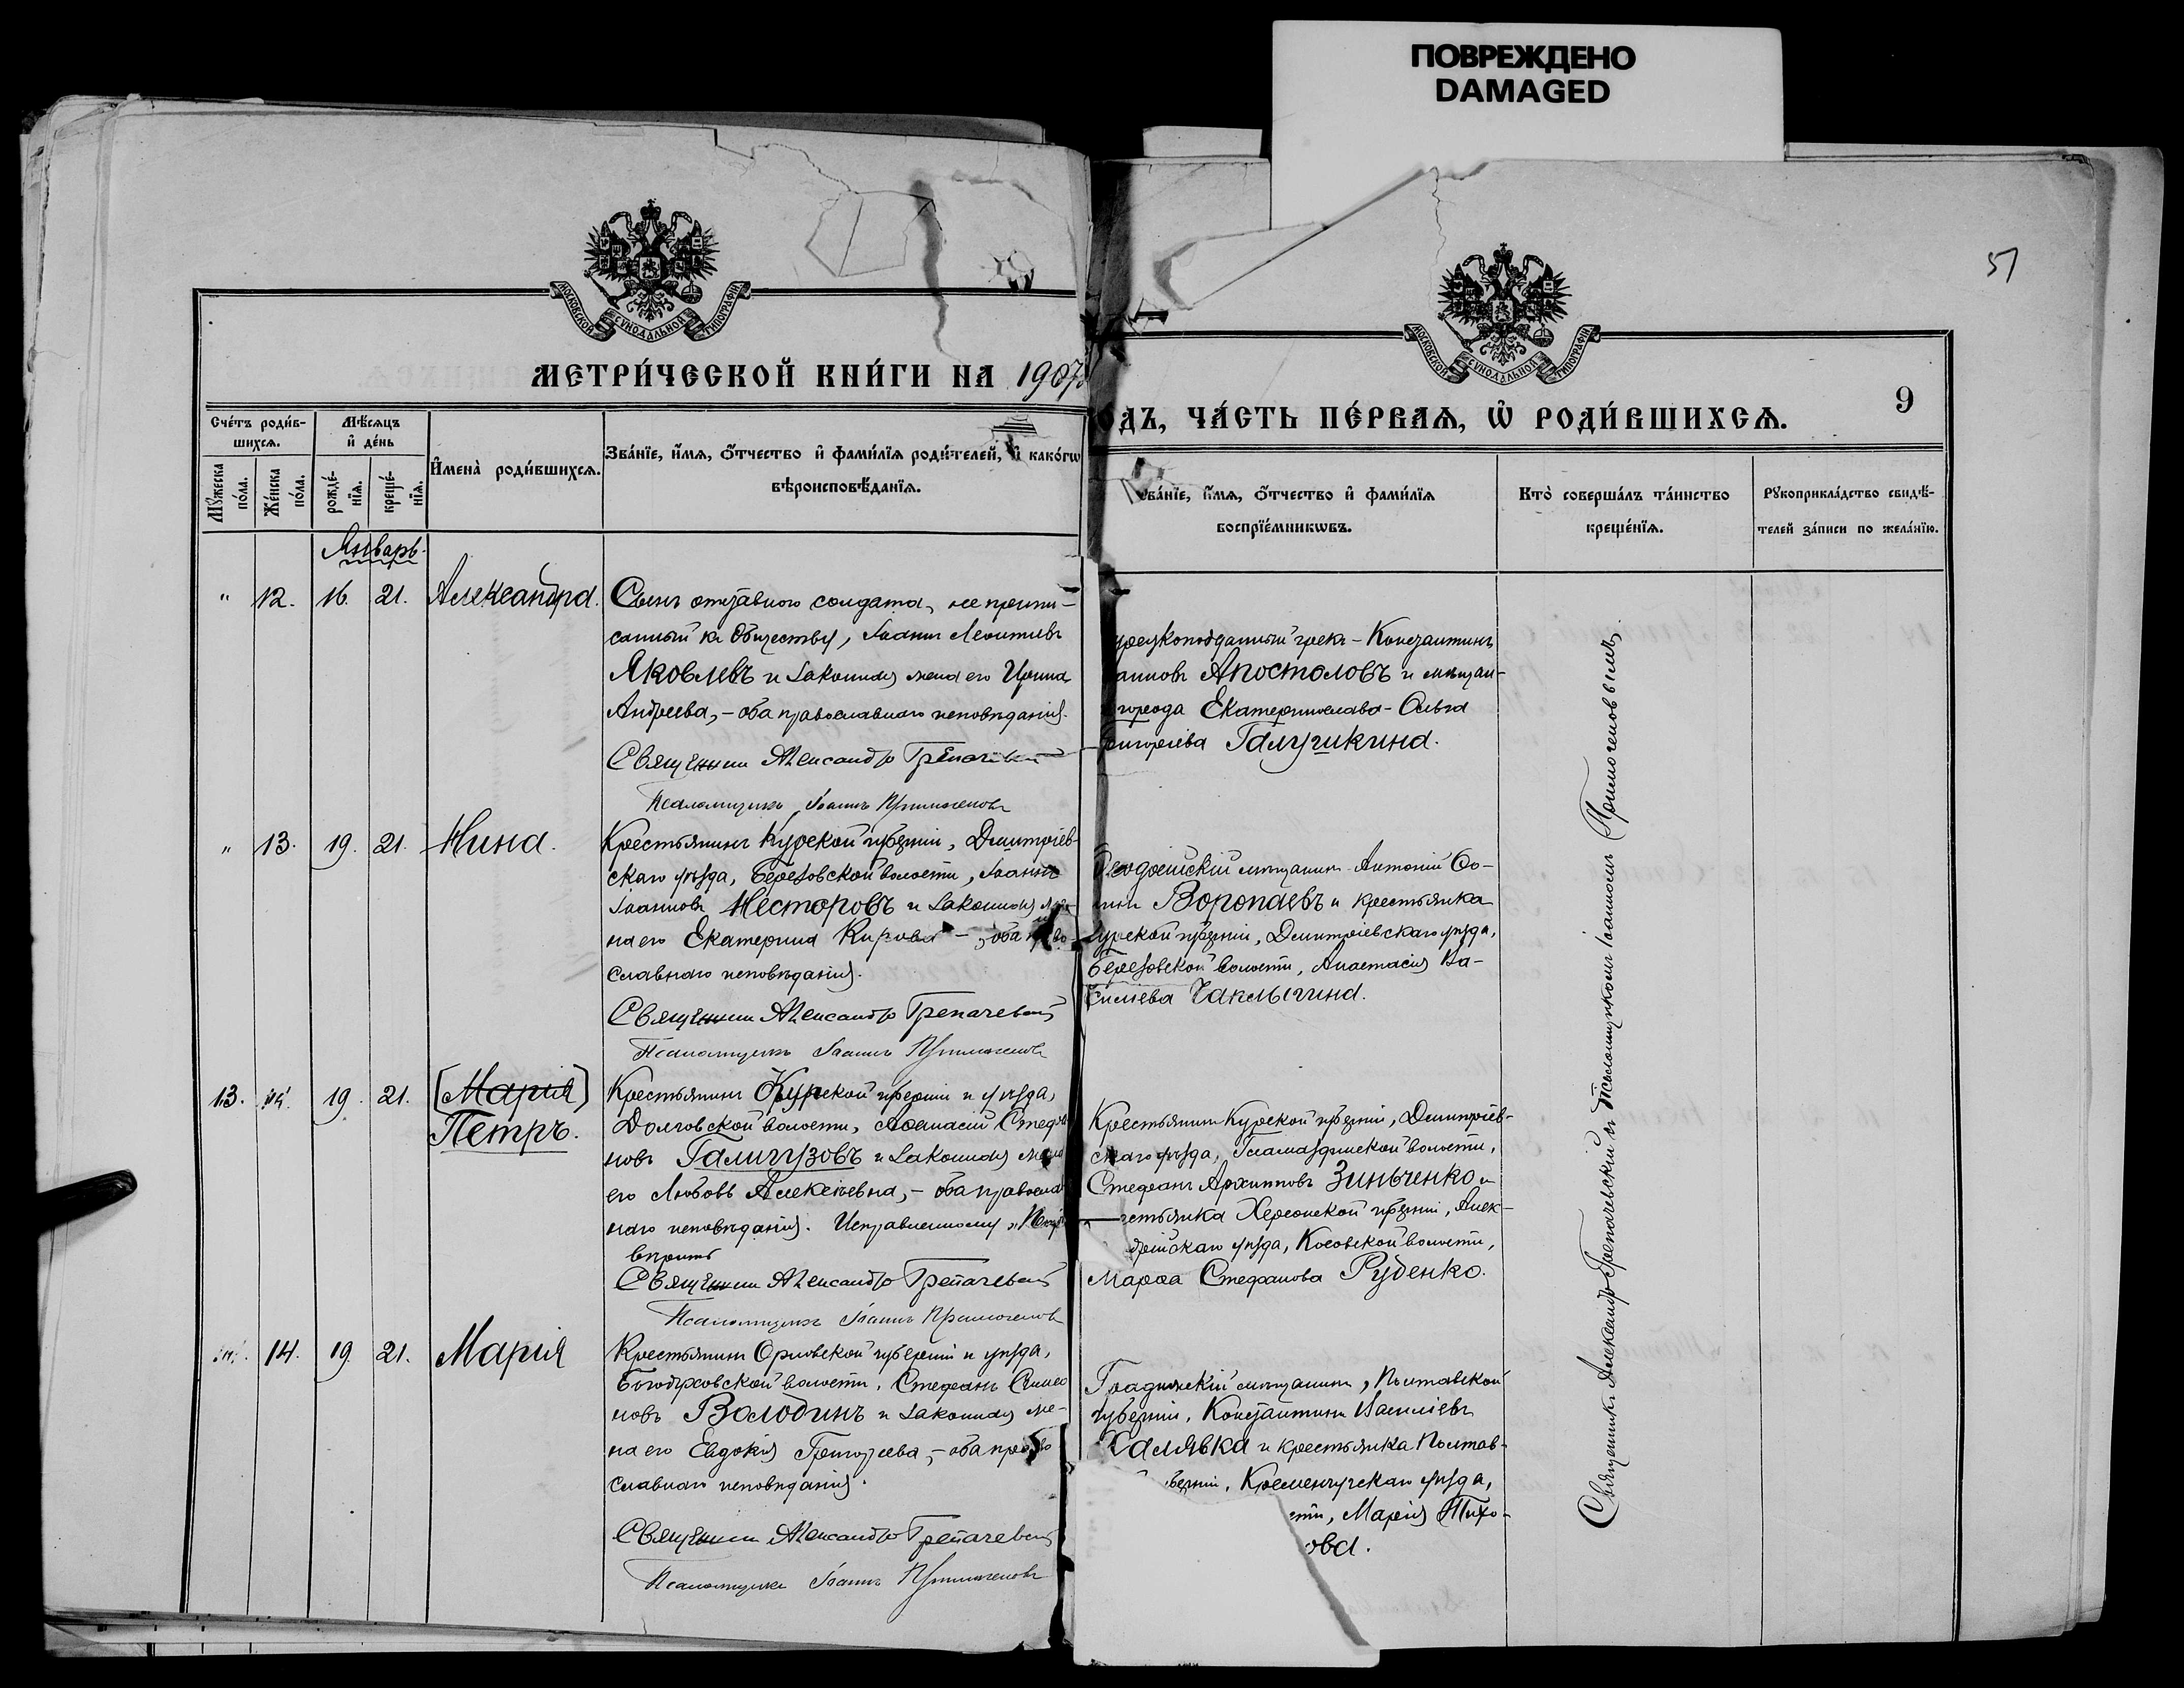 ПОВРЕЖДЕНО
DAMAGED
51
МОСКОВСКОЙ СѴНОДАЛЬНОЙ ТИПОГРАФІИ
МОСКОВСКОЙ СѴНОДАЛЬНОЙ ТИПОГРАФІИ
МЕТРИ́ЧЕСКОЙ КНИ́ГИ НА 1907
ОДЪ, ЧА́СТЬ ПЕ́РВАѦ, Ѽ РОДИ́ВШИХСѦ.
9
Сче́тъ роди́в-
шихсѧ.
Мꙋжеска по́ла.
Же́нска по́ла.
Мѣ́сѧцъ
и҆ де́нь
рожде́-
нїѧ.
креще́-
нїѧ.
И҆мена̀ роди́вшихсѧ.
Зва́нїе, и҆́мѧ, ѻ҆́тчество и҆ фами́лїѧ роди́телей, и҆ како́гѡ
вѣроисповѣ́данїѧ.
ва́нїе, и҆́мѧ, ѻ҆́тчество и҆ фами́лїѧ
воспрїе́мникѡвъ.
Кто̀ соверша́лъ та́инство
креще́нїѧ.
Рꙋкоприкла́дство свидѣ́-
телей за́писи по жела́нїю.
Январь.
" 12. 16. 21. Александра.
Сынъ отставного солдата, не припи-
санный къ обществу, Іоаннъ Леонтіевъ
Яковлевъ и законная жена его Ирина
Андреева, – оба православнаго исповѣданія.
Священникъ Александръ Трепачевскій
Псаломщикъ Іоаннъ Примоченовъ
урецкоподданный грекъ – Константинъ
аниовъ Апостоловъ и мѣщан-
города Екатеринослава – Ольга
ригоріева Галушкина.
" 13. 19. 21. Нина.
Крестьянинъ Курской губерніи, Дмитріев-
скаго уѣзда, Березовской волости, Іоаннъ
Іоанновъ Несторовъ и законная же-
на его Екатерина Кирова – оба право
славнаго исповѣданія.
Священникъ Александръ Трепачевскій
Псаломщикъ Іоаннъ Примоченовъ
Ѳеодосійскій мѣщанинъ Антоній Ѳо-
мин Воропаевъ и крестьянка
Курской губерніи, Дмитріевскаго уѣзда,
Березовской волости, Анастасія Ва-
силіева Чаплыгина.
13. 19. 21. [Марія]
Петръ.
Крестьянинъ Курской губерніи и уѣзда,
Долговской волости, Аѳанасій Стефа
новъ Галигузовъ и законная жена
его Любовь Алексіевна, – оба православ
наго исповѣданія. Исправленному „Петръ
вѣрить
Священникъ Александръ Трепачевскій
Псаломщикъ Іоаннъ Примоченовъ
Крестьянинъ Курской губерніи, Дмитріев-
скаго уѣзда, волости,
Стефанъ Архипповъ Зинченко и
стьянка Херсонской губерніи, Алек-
дрійскаго уѣзда, Косовской волости,
Марѳа Стефанова Руденко.
14. 19. 21. Марія
Крестьянинъ Орловской губерніи и уѣзда,
волости, Стефанъ Симео
новъ Володинъ и законная же-
на его Евдокія Григорьева, – оба право
славнаго исповѣданія.
Священникъ Александръ Трепачевскій
Псаломщикъ Іоаннъ Примоченовъ
Градижскій мѣщанинъ, Полтавской
губерніи, Константинъ Василіевъ
Халявка и крестьянка Полтав-
берніи, Кременчугскаго уѣзда,
сти, Марія Тихо-
ова.
Священникъ Александръ Трепачевскій съ Псаломщикомъ Іоанномъ Примоченовымъ.